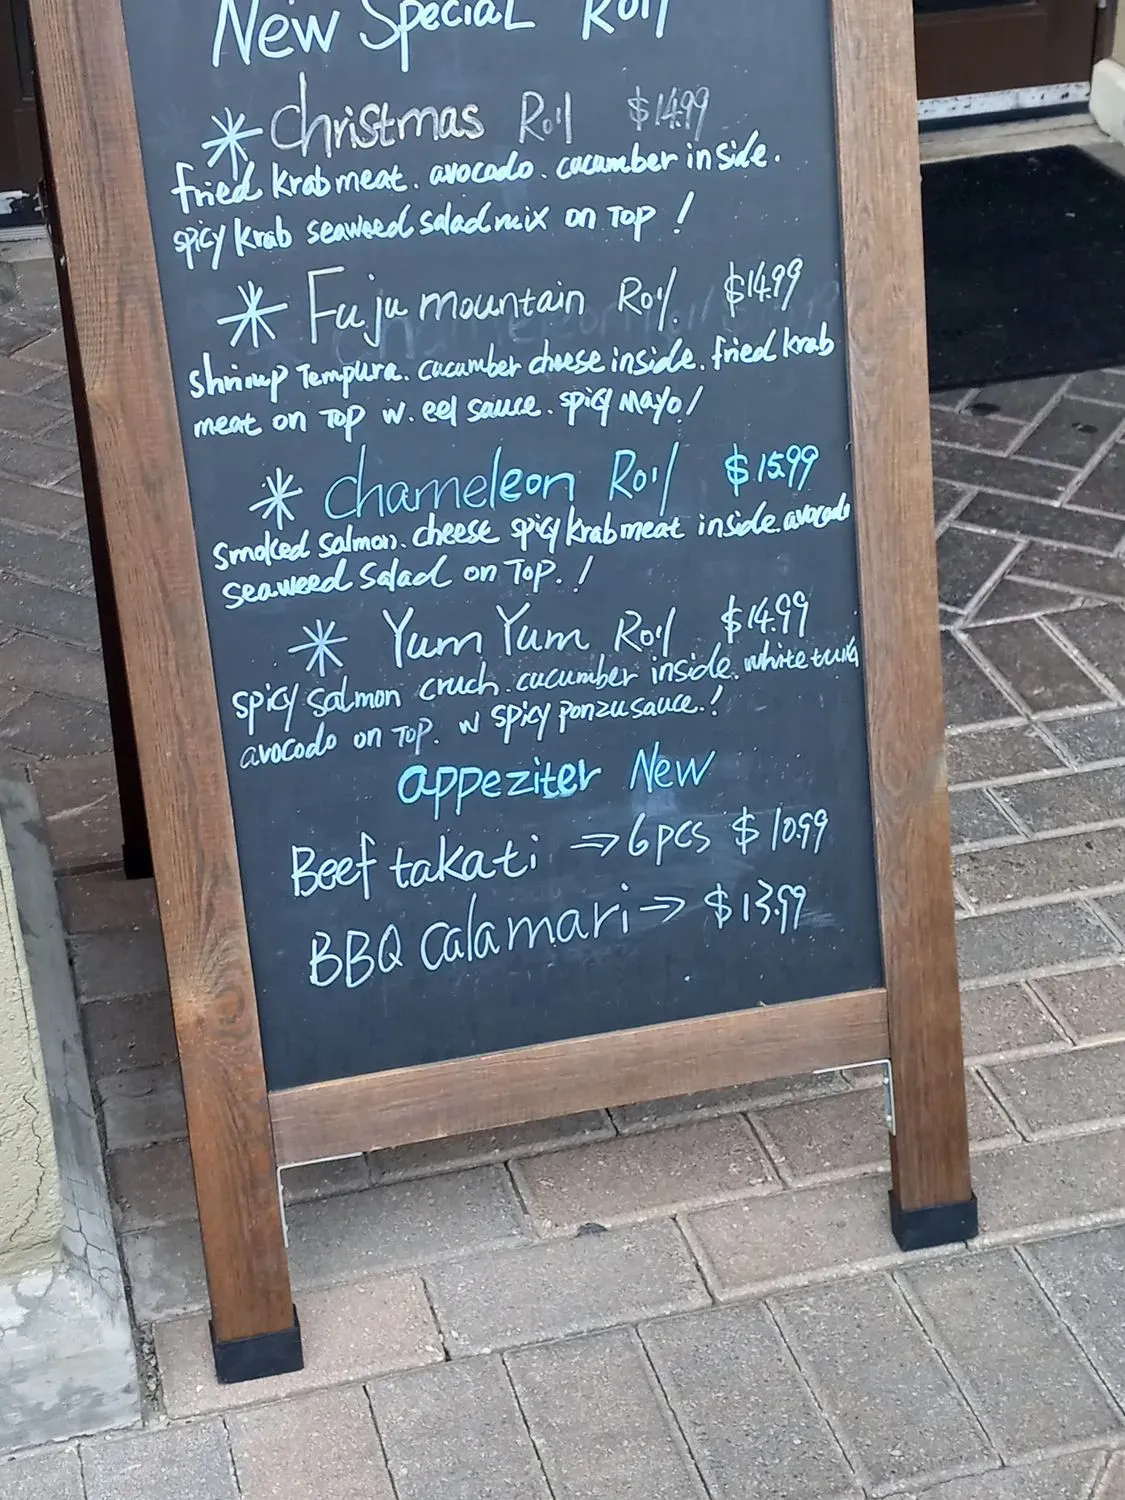 New Special Roll
* Christmas Roll $14.99
fried krab meat. avocado. cucumber inside.
spicy krab seaweed salad mix on Top !
* Fuju mountain Roll $14.99
shrimp Tempura. cucumber cheese inside. fried krab
meat on Top w. eel sauce. spicy Mayo!
* chameleon Roll $15.99
smoked salmon. cheese spicy krab meat inside. avocado
seaweed salad on Top. !
* Yum Yum Roll $14.99
spicy salmon cruch. cucumber inside. white tuna
avocado on Top. w spicy ponzu sauce. !
appeziter New
Beef takati ⇒ 6pcs $10.99
BBQ calamari → $13.99